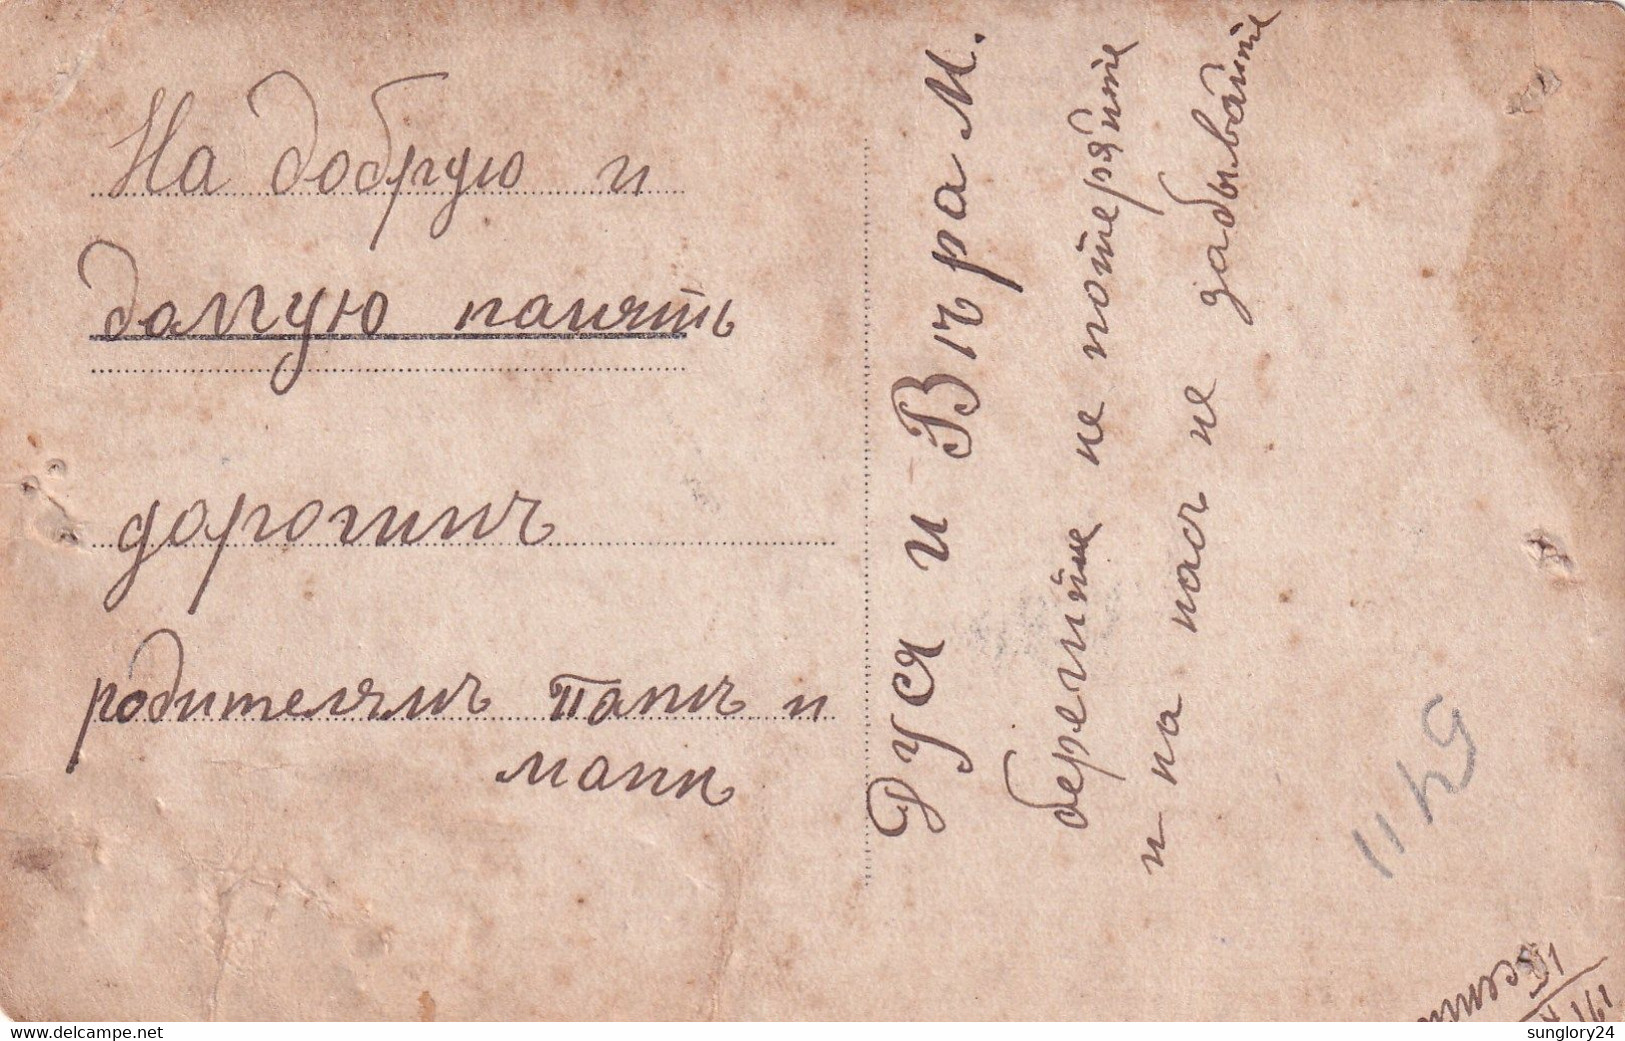 На добрую и
долгую память
дорогимъ
родителямъ папи и
мапи
Руся и Вѣра М.
берегите не потеряйте
и на насъ не забывайте
54 11
sunglory24